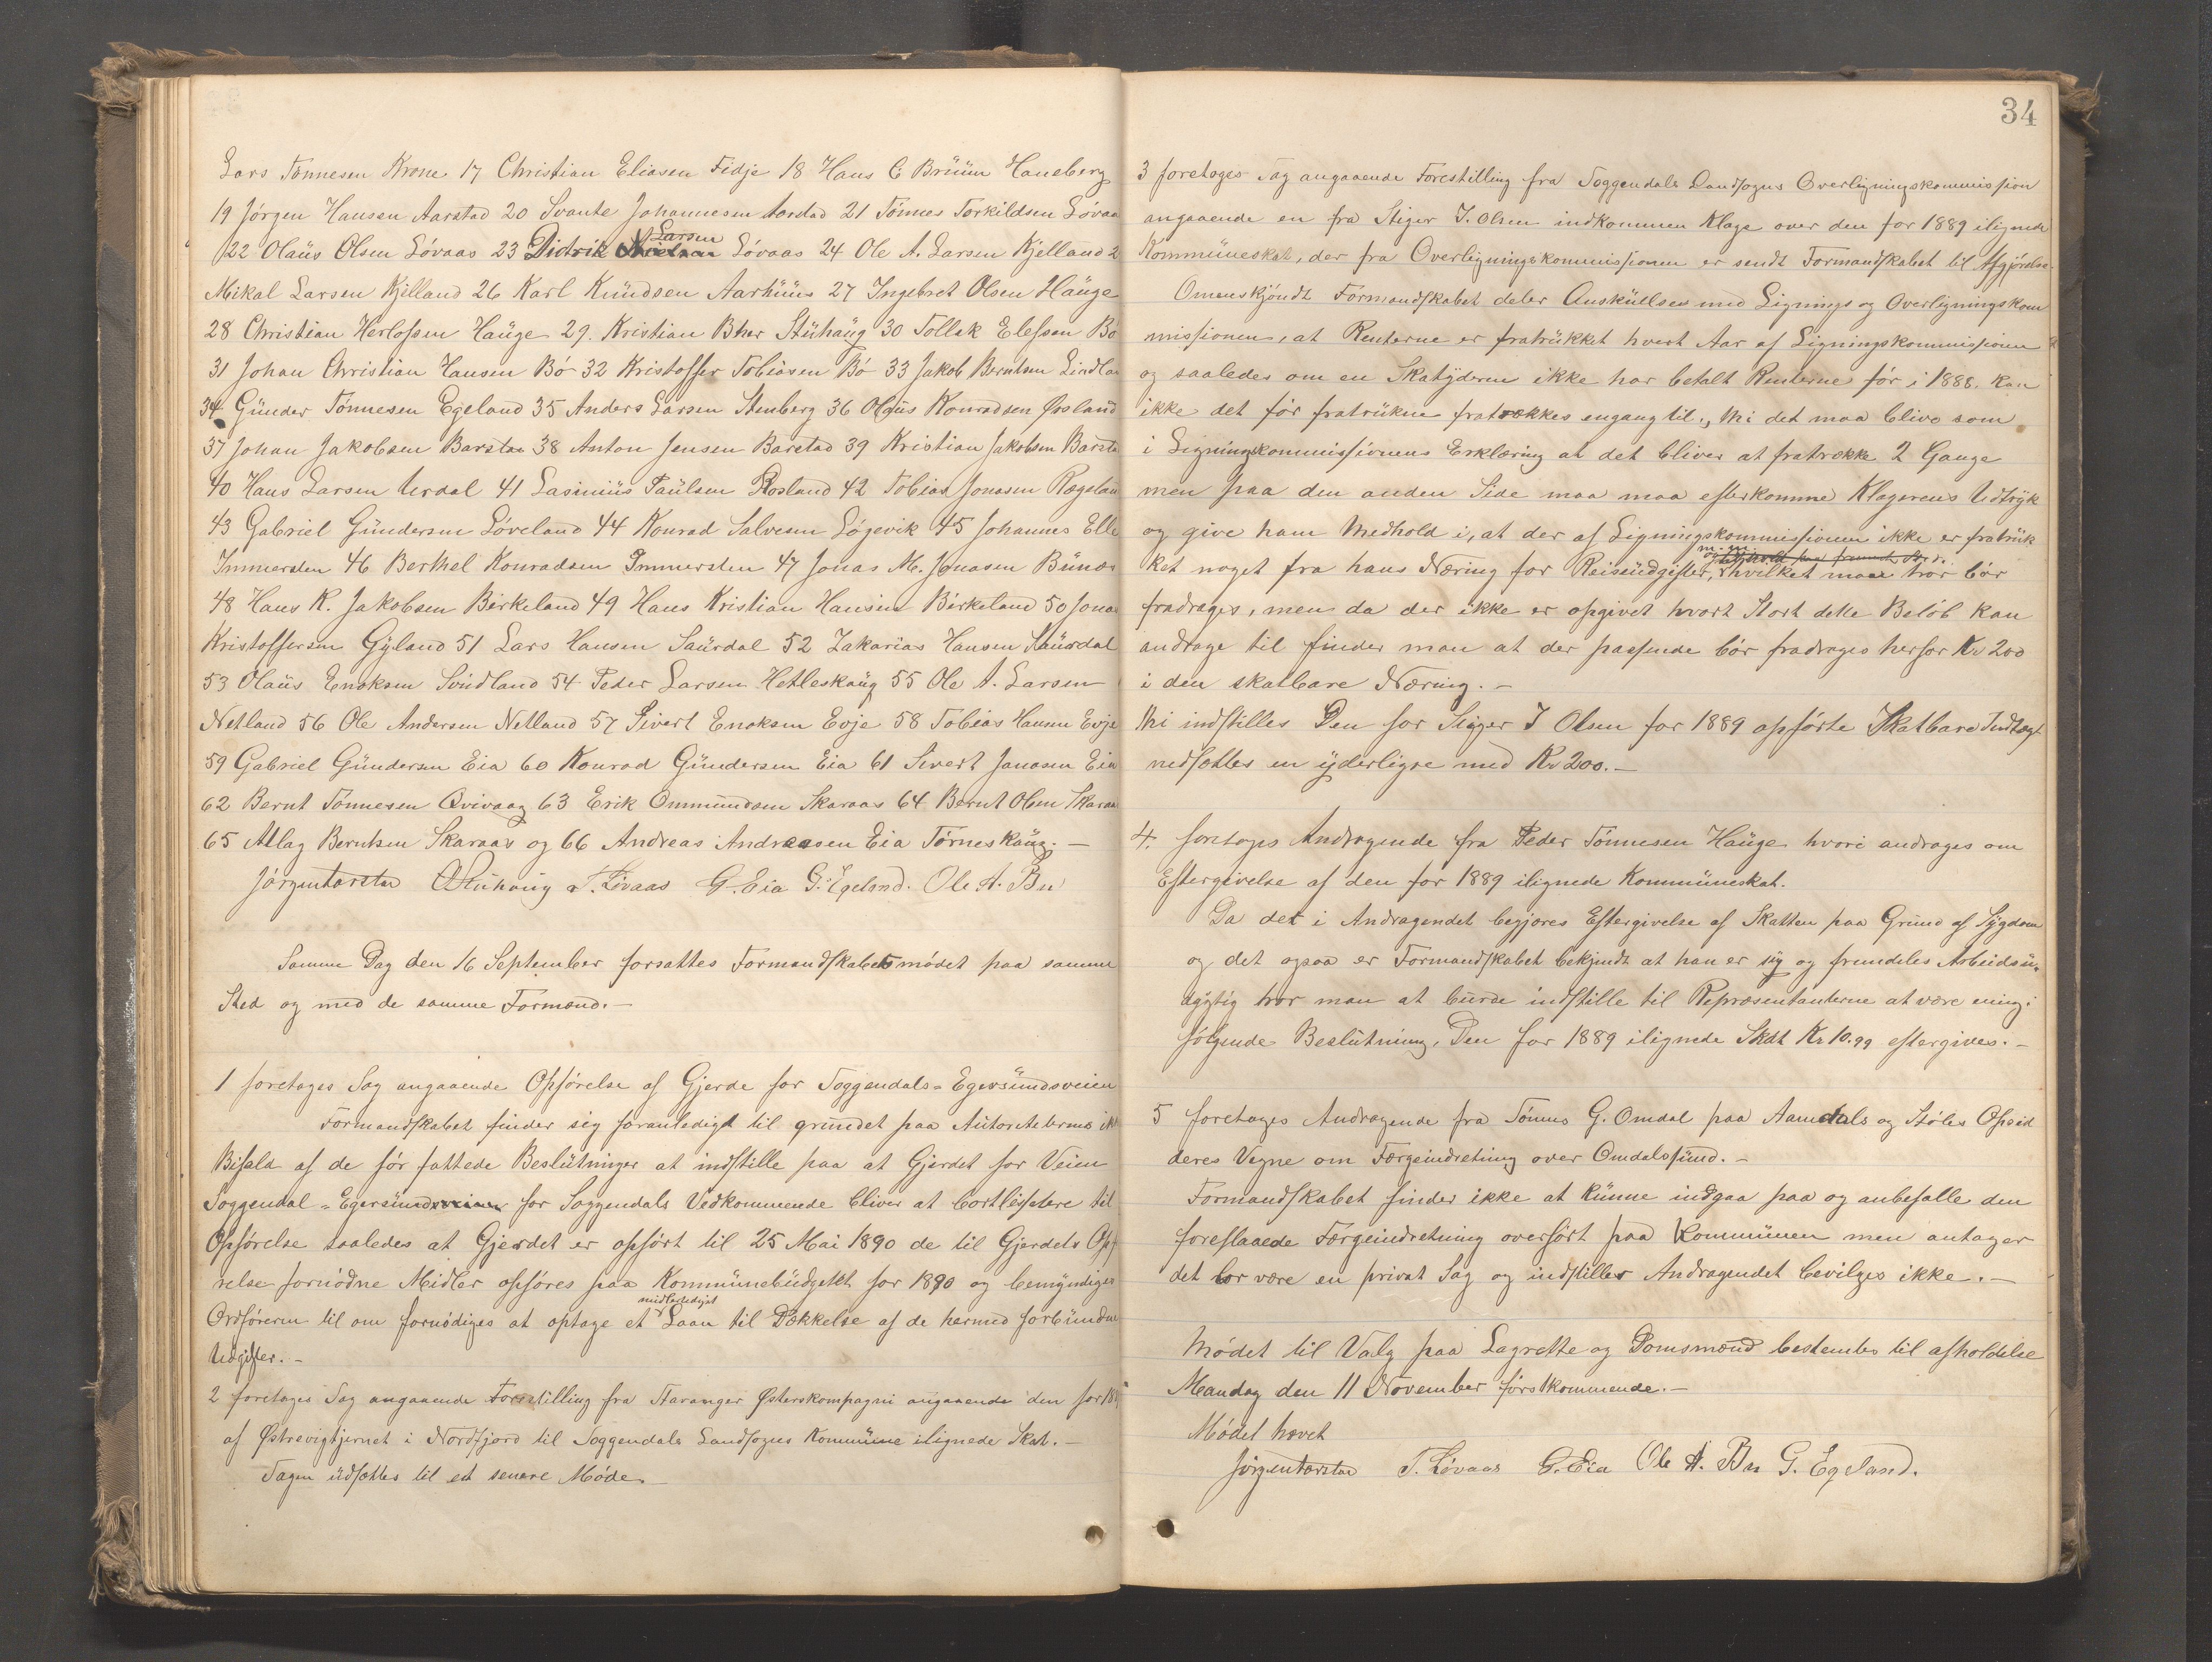 Lars Tønnesen Krone 17 Christian Eliasen Fidje 18 Hans C Bruun Haneberg
19 Jørgen Hansen Aarstad 20 Svante Johannesen Aarstad 21 Tønnes Torkildsen Løvaa
22 Olaus Olsen Løvaas 23 Didrik Larsen Løvaas 24 Ole A. Larsen Kjelland 2
Mikal Larsen Kjelland 26 Karl Knudsen Aarhuus 27 Ingebret Olsen Hauge
28 Christian Herlofsen Hauge 29. Kristian Bher Stuhaug 30 Tollak Elefsen Bø
31 Johan Christian Hansen Bø 32 Kristoffer Tobiasen Bø 33 Jakob Berntsen Lindla
34 Gunder Tønnesen Egeland 35 Anders Larsen Stenberg 36 Olaus Konradsen Øvsland
37 Johan Jakobsen Barstad 38 Anton Jensen Barstad 39 Kristian Jakobsen Barsta
40 Hans Larsen Urdal 41 Lasinius Paulsen Rosland 42 Tobias Jonasen Rægelan
43 Gabriel Gundersen Løveland 44 Konrad Salvesen Løgevik 45 Johannes Elle
Immersten 46 Berthel Konradsen Immersten 47 Jonas M. Jonasen Bunæs
48 Hans R. Jakobsen Birkeland 49 Hans Kristian Hansen Birkeland 50 Jonas
Kristoffersen Gyland 51 Lars Hansen Saurdal 52 Zakarias Hansen Saurdal
53 Olaus Enoksen Svindland 54 Peder Larsen Hetleskaug 55 Ole A. Larsen
Netland 56 Ole Andersen Netland 57 Sivert Enoksen Evje 58 Tobias Hansen Evje
59 Gabriel Gundersen Eia 60 Konrad Gundersen Eia 61 Sivert Jonasen Eia
62 Bernt Tønnesen Qvivaag 63 Erik Ommundsen Skaraas 64 Bernt Olsen Skaraa
65 Atlag Berntsen Skaraas og 66 Andreas Andreasen Eia Tørneskaug. —
Jørgen Aarstad CStuhaug T. Løvaas G. Eia G. Egeland. Ole A. Bøe
Samme Dag den 16 September forsattes Formandskabetsmødet paa samme
Sted og med de samme Formænd. —
1 foretoges Sag angaaende Opførelse af Gjerde for Soggendals-Egersundsveien
Formandskabet finder sig foranlediget til grundet paa Autoriteternes ikke
Bifald af de før fattede Beslutninger at indstille paa at Gjerdet for Veien
Soggendal-Egersund for Soggendals Vedkommende bliver at bortlisitere til
Opførelse saaledes at Gjerdet er opført til 25 Mai 1890 de til Gjerdets Opf
relse fornødne Midler opføres paa Kommunebudgettet for 1890 og bemyndiges
midlertidigt
Ordføreren til om fornødiges at optage et Laan til Dækkelse af de hermed forbundne
Udgifter. —
2 foretoges Sag angaaende Forestilling fra Stavanger Østerskompagni angaaende den for 188
af Østrevigtjernet i Nordfjord til Soggendals Landsogns Kommune ilignede Skat. —
Sagen udsættes til et senere Møde. —
34
3 foretoges Sag angaaende Forestilling fra Soggendals Landsogns Overligningskommission
angaaende en fra Stiger J. Olsen indkommen Klage over den for 1889 ilignede
Kommuneskat, der fra Overligningskommissionen er sendt Formandskabet til Afgjørelse.
Omenskjøndt Formandskabet deler Anskuelser med Lignings og Overligningskom
missionen, at Renterne er fratrukket hvert Aar af Ligningskommissionen
og saaledes om en Skatyderen ikke har betalt Renterne før i 1888. kan
ikke det før fratrukne fratrækkes engang til., thi det maa blive som
i Ligningskommissionens Erklæring at det bliver at fratrække 2 Gange
men paa den anden Side maa maa efterkomme Klagerens Udtryk
og give ham Medhold i, at der af Ligningskommissionen ikke er fratruk
m. m.
ket noget fra hans Næring for Reiseudgifter, hvilket man tror bør
fradrages, men da der ikke er opgivet hvort Stort dette Beløb kan
andrage til finder man at der passende bør fradrages herfor Kr 200
i den skatbare Næring. —
Thi indstilles Den for Stiger J Olsen for 1889 opførte Skatbare Indtægt
nedsættes en yderligre med Kr 200. —
4. foretoges Andragende fra Peder Tønnesen Hauge hvori andrages om
Eftergivelse af den for 1889 ilignede Kommuneskat.
Da det i Andragendet begjæres Eftergivelse af Skatten paa Grund af Sygdom
og det ogsaa er Formandskabet bekjendt at han er syg og fremdeles Arbeidsu-
dygtig tror man at burde indstille til Repræsentanterne at være enig i
følgende Beslutning. Den for 1889 ilignede Skat Kr 10.99 eftergives. —
5 foretoges Andragende fra Tønnes G. Omdal paa Aamdals og Støles Opsid
deres Vegne om Færgeindretning over Omdalssund. —
Formandskabet finder ikke at kunne indgaa paa og anbefalle den
foreslaaede Færgeindretning overført paa Kommunen men antager
det bør være en privat Sag og indstilles Andragendet bevilges ikke. —
Mødet til Valg paa Lagrette og Domsmænd bestemtes til afholdelse
Mandag den 11 November førstkommende. —
Mødet hævet
Jørgen Aarstad T. Løvaas G. Eia Ole A. Bøe G. Egeland.